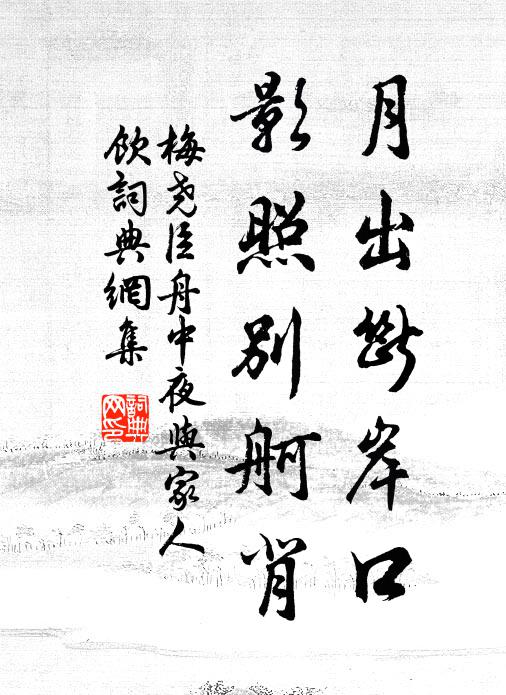 月出斷岸口
影照別舸背
梅堯臣舟中夜與家人
飲詞典網集
詞典
网印